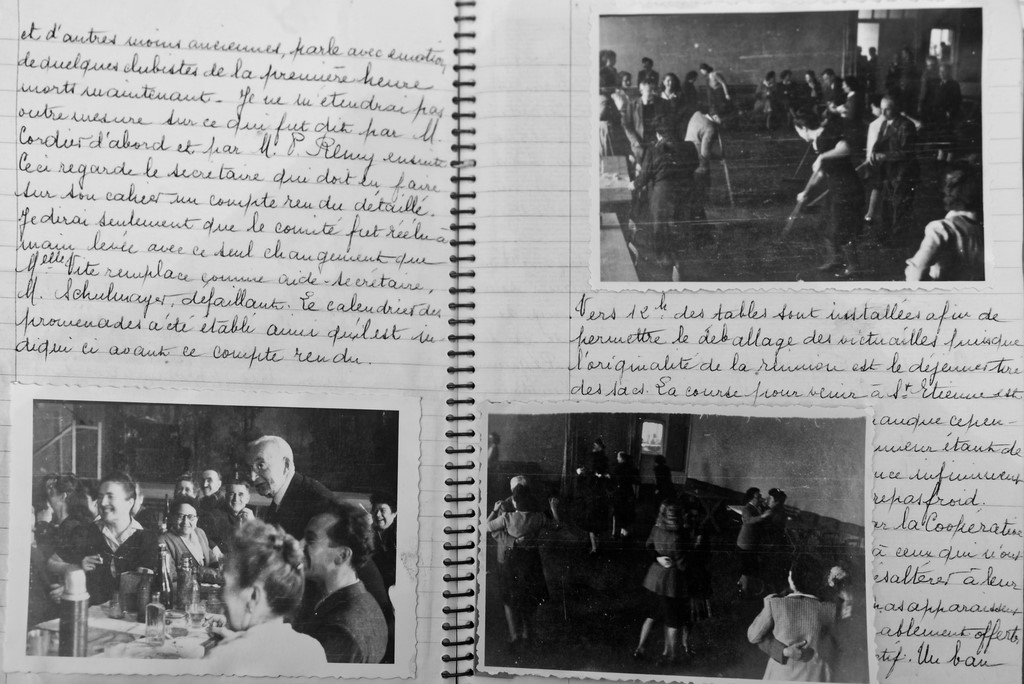 et d'autres moins anciennes, parle avec émotion
de quelques clubistes de la première heure
morts maintenant. Je ne m'étendrai pas
outre mesure sur ce qui fut dit par M.
Cordier d'abord et par M. P. Remy ensuite
Ceci regarde le secrétaire qui doit en faire
sur son cahier un compte rendu détaillé.
Je dirai seulement que le comité fut réélu à
main levée avec ce seul changement que
Melle Vite remplace comme aide-secrétaire,
M. Schulmayer, défaillant. Le calendrier des
promenades a été établi ainsi qu'il est in-
diqué ci avant ce compte rendu.
Vers 12h des tables sont installées afin de
permettre le déballage des victuailles puisque
l'originalité de la réunion est le déjeuner tiré
des sacs. La course pour venir à St Etienne est
manque cepen-
étant de
infiniment
repas froid.
la Coopérative
à ceux qui n'ont
désaltérer à leur
pas apparaissent
offerts
Un ban